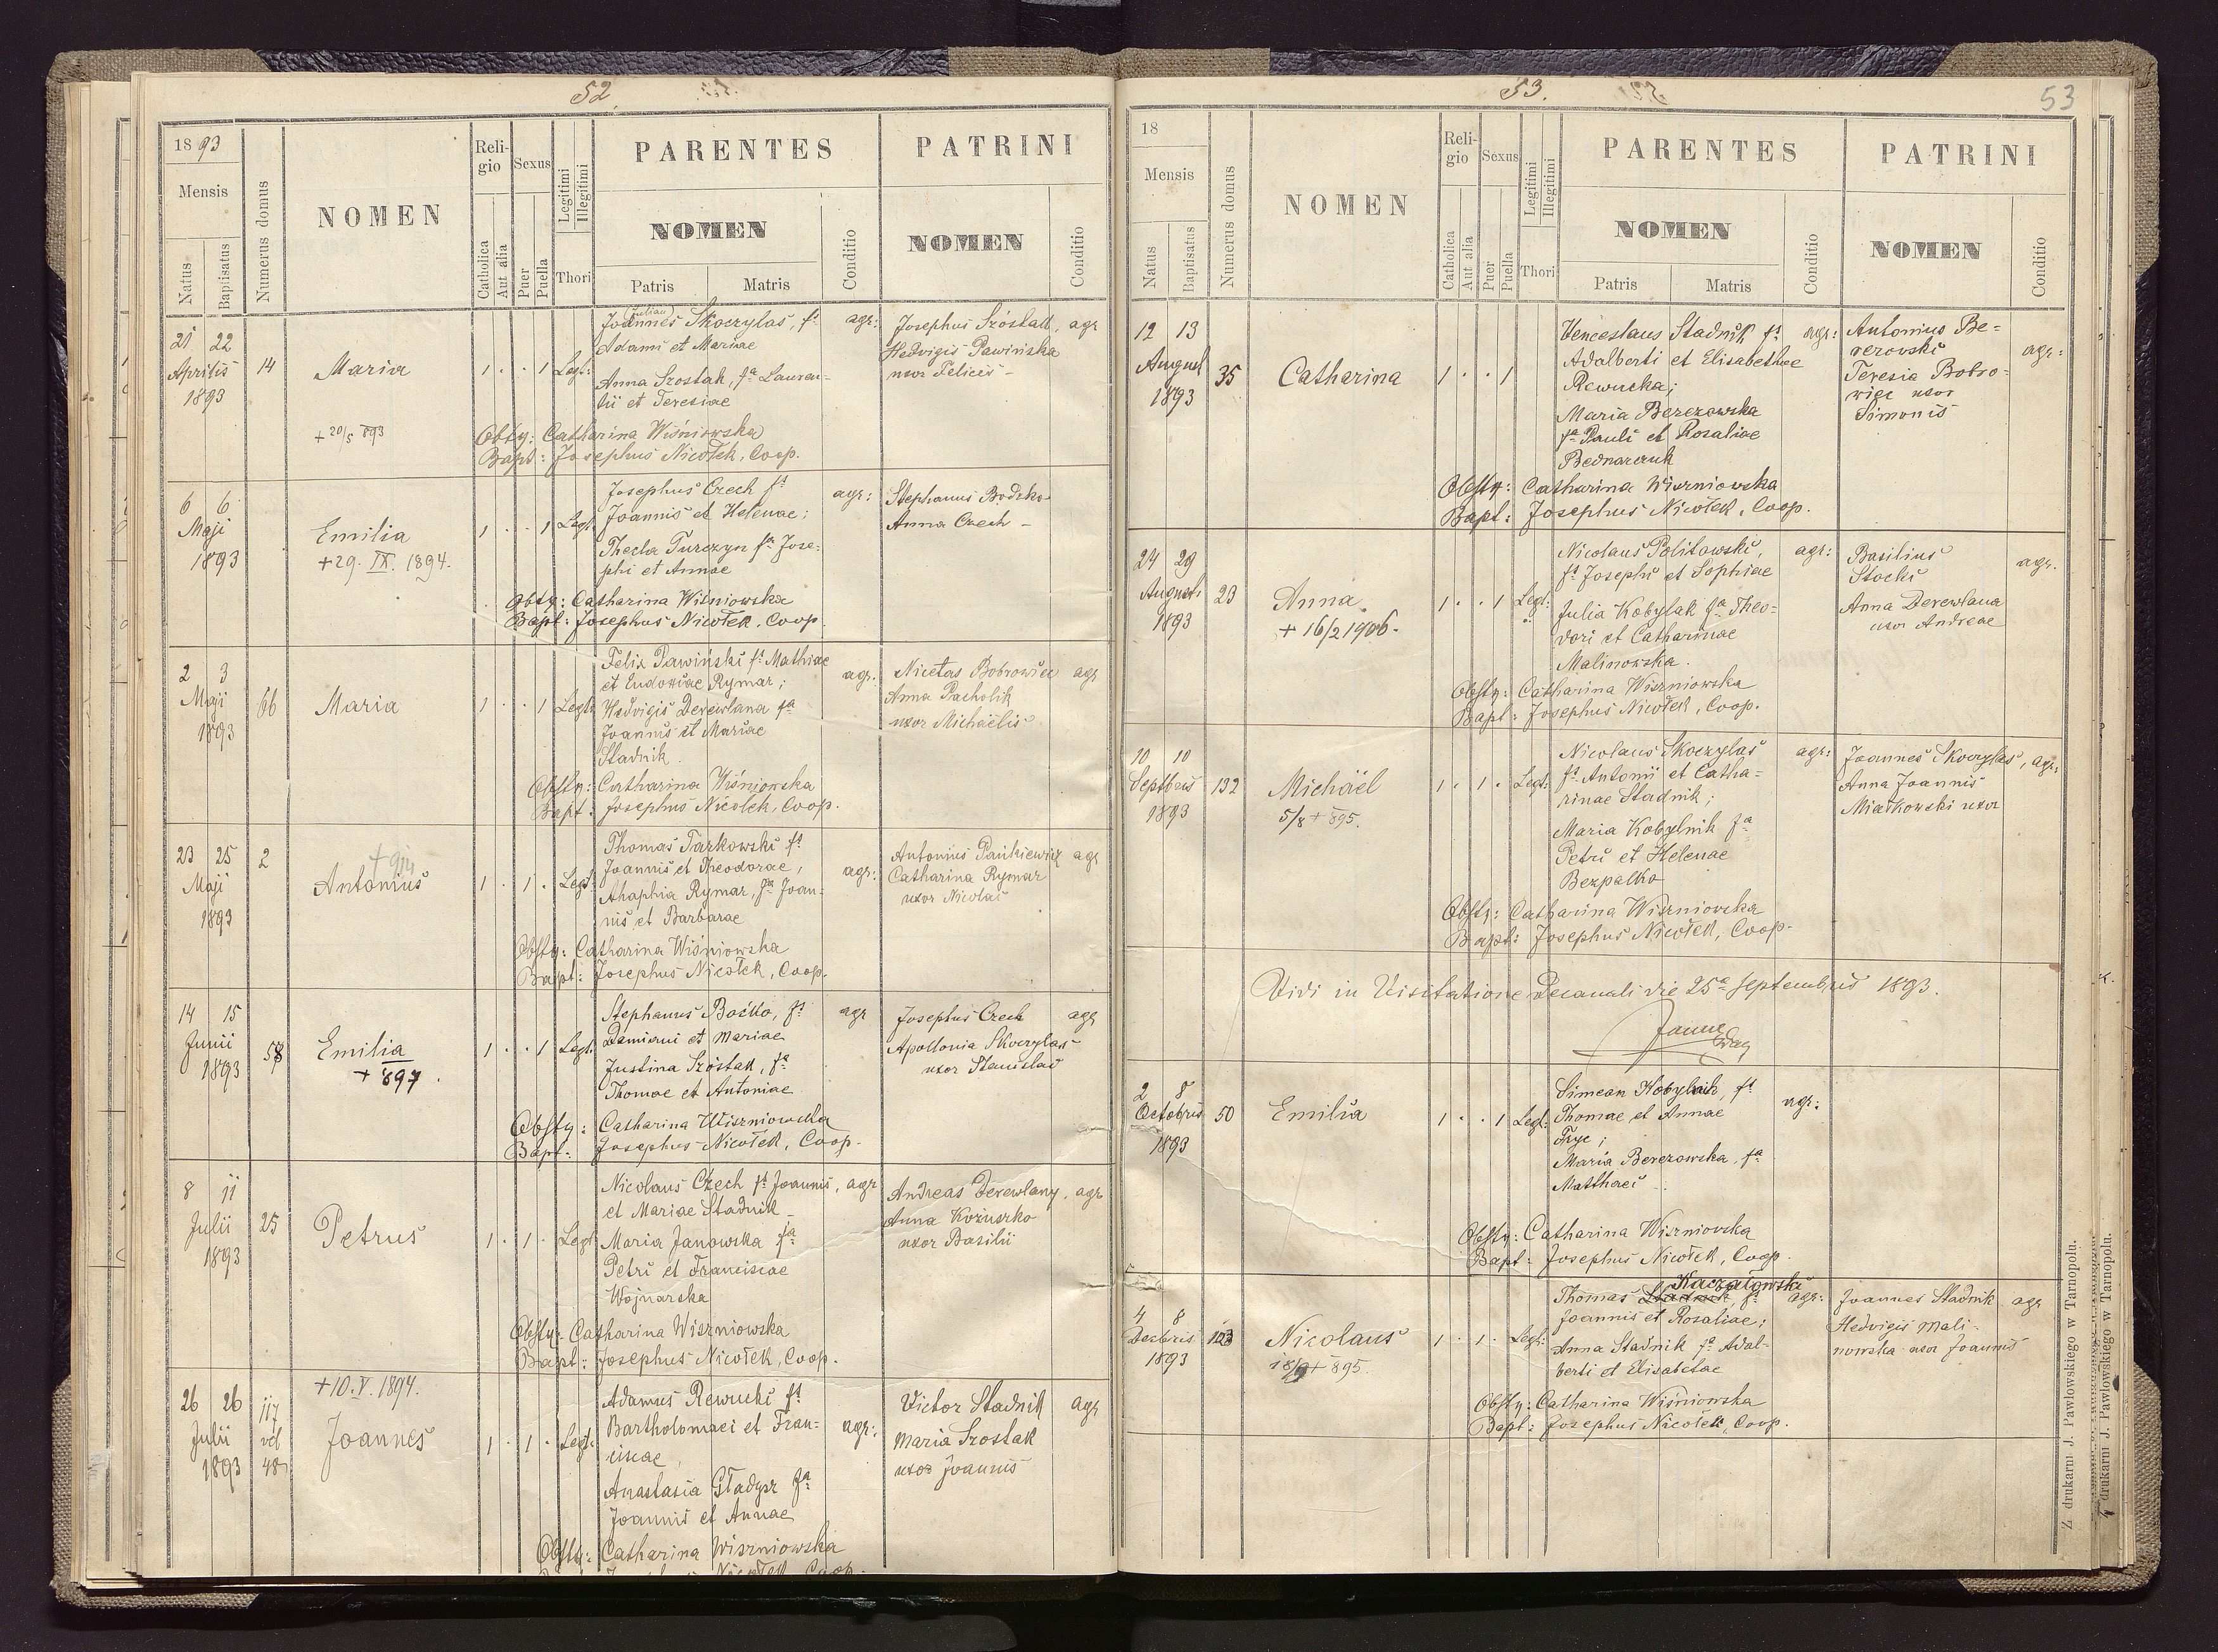 52.
1893
Mensis
Natus
Baptisatus
Numerus domus
NOMEN
Religio
Catholica
Aut alia
Sexus
Puer
Puella
Legitimi
Illegitimi
Thori
PARENTES
NOMEN
Patris
Matris
Conditio
PATRINI
NOMEN
Conditio
21 22
Aprilis
1893
14
Maria
+ 20/5 893
1 . . 1 Legt:
Joannes Skoczylas, fs
Adami et Mariae
Anna Szostak, fa Lauren-
tii et Teresiae
agr:
Josephus Szóstak, agr
Hedvigis Pawińska
uxor Felicis -
Obstr: Catharina Wiśniowska
Bapt: Josephus Nicołek, Coop.
6 6
Maji
1893
Emilia
+29. IX. 1894.
1 . . 1 Legt.
Josephus Czech fs
Joannis et Helenae;
Thecla Turczyn fa Jose-
phi et Annae
agr:
Stephanus Bodzko
Anna Czech -
Obstr: Catharina Wiśniowska
Bapt: Josephus Nicołek, Coop.
2 3
Maji
1893
66
Maria
1 . . 1 Legt:
Felix Pawiński fs Mathiae
et Eudoxiae Rymar;
Hedvigis Derewlana fa
Joannis et Mariae
Stadnik.
agr.
Nicetas Bobrowiec agr
Anna Pacholik
uxor Michaëlis
Obstr: Catharina Wiśniowska
Bapt: Josephus Nicołek, Coop.
23 25
Maji
1893
2
Antonius
1 . 1 . Legt:
Thomas Tarkowski fs
Joannis et Theodorae,
Ahaphia Rymar, fa Joan-
nis et Barbarae
agr:
Antonius Pańkiewicz agr
Catharina Rymar
uxor Nicolai
Obstr: Catharina Wiśniowska
Bapt: Josephus Nicołek, Coop.
14 15
Junii
1893
58
Emilia
+ 897.
1 . . 1 Legt:
Stephanus Boćko, fs
Damiani et Mariae
Justina Szóstak, fa
Thomae et Antoniae
agr
Josephus Czech agr
Apollonia Skoczylas
uxor Stanislai
Obstr: Catharina Wiszniowska
Bapt: Josephus Nicołek, Coop.
8 11
Julii
1893
25
Petrus
1 . 1 . Legt
Nicolaus Czech fs Joannis, agr
et Mariae Stadnik
Maria Janowska fa
Petri et Franciscae
Wojnarska
Andreas Derewlany, agr
Anna Kożuszko
uxor Basilii
Obstr: Catharina Wiszniowska
Bapt: Josephus Nicołek, Coop.
26 26
Julii
1893
117
vel
48
+10.V.1894.
Joannes
1 . 1 . Legt:
Adamus Rewucki fs
Bartholomaei et Fran-
ciscae,
Anastasia Gładysz fa
Joannis et Annae
agr:
Victor Stadnik agr
Maria Szostak
uxor Joannis
Obstr: Catharina Wiszniowska
53.
53
18
Mensis
Natus
Baptisatus
Numerus domus
NOMEN
Religio
Catholica
Aut alia
Sexus
Puer
Puella
Legitimi
Illegitimi
Thori
PARENTES
NOMEN
Patris
Matris
Conditio
PATRINI
NOMEN
Conditio
12 13
August
1893
35
Catharina
1 . . 1
Venceslaus Stadnik fs
Adalberti et Elisabethae
Rewucka;
Maria Berezowska
fa Pauli et Rosaliae
Bednarczuk
agr:
Antonius Be-
rezovski
Teresia Bobro-
wiec uxor
Simonis
agr:
Obstr: Catharina Wiszniowska
Bapt: Josephus Nicołek, Coop.
24 29
Augusti
1893
23
Anna
+ 16/2 1906.
1 . . 1 Legt:
Nicolaus Politowski,
fs Josephi et Sophiae
Julia Kobylak fa Theo-
dori et Catharinae
Malinowska.
agr:
Basilius
Stocki
Anna Derewlana
uxor Andreae
agr.
Obstr: Catharina Wiszniowska
Bapt: Josephus Nicołek, Coop.
10 10
Septbris
1893
132
Michaël
5/8 + 895.
1 . 1 . Legt:
Nicolaus Skoczylas
fs Antonii et Catha-
rinae Stadnik;
Maria Kobylnik fa
Petri et Helenae
Bezpalko
agr:
Joannes Skoczylas, agr:
Anna Joannis
Miałkowski uxor
Obstr: Catharina Wiszniowska
Bapt: Josephus Nicołek, Coop.
Vidi in Visitatione Decanali die 25a Septembris 1893.
2 8
Octobris
1893
50
Emilia
1 . . 1 Legt:
Simeon Kobylnik, fs
Thomae et Annae
Fryc;
Maria Berezowska, fa
Matthaei
agr:
Obstr: Catharina Wiszniowska
Bapt: Josephus Nicołek, Coop.
4 8
Decbris
1893
123
Nicolaus
18/9 + 895.
1 . 1 . Legt:
Kaczałowski
Thomas Stadnik fs
Joannis et Rosaliae;
Anna Stadnik fa Adal-
berti et Elisabetae
agr:
Joannes Stadnik agr
Hedvigis Mali-
nowska uxor Joannis
Obstr: Catharina Wiśniowska
Bapt: Josephus Nicołek, Coop.
Z drukarni J. Pawłowskiego w Tarnopolu.
Z drukarni J. Pawłowskiego w Tarnopolu.